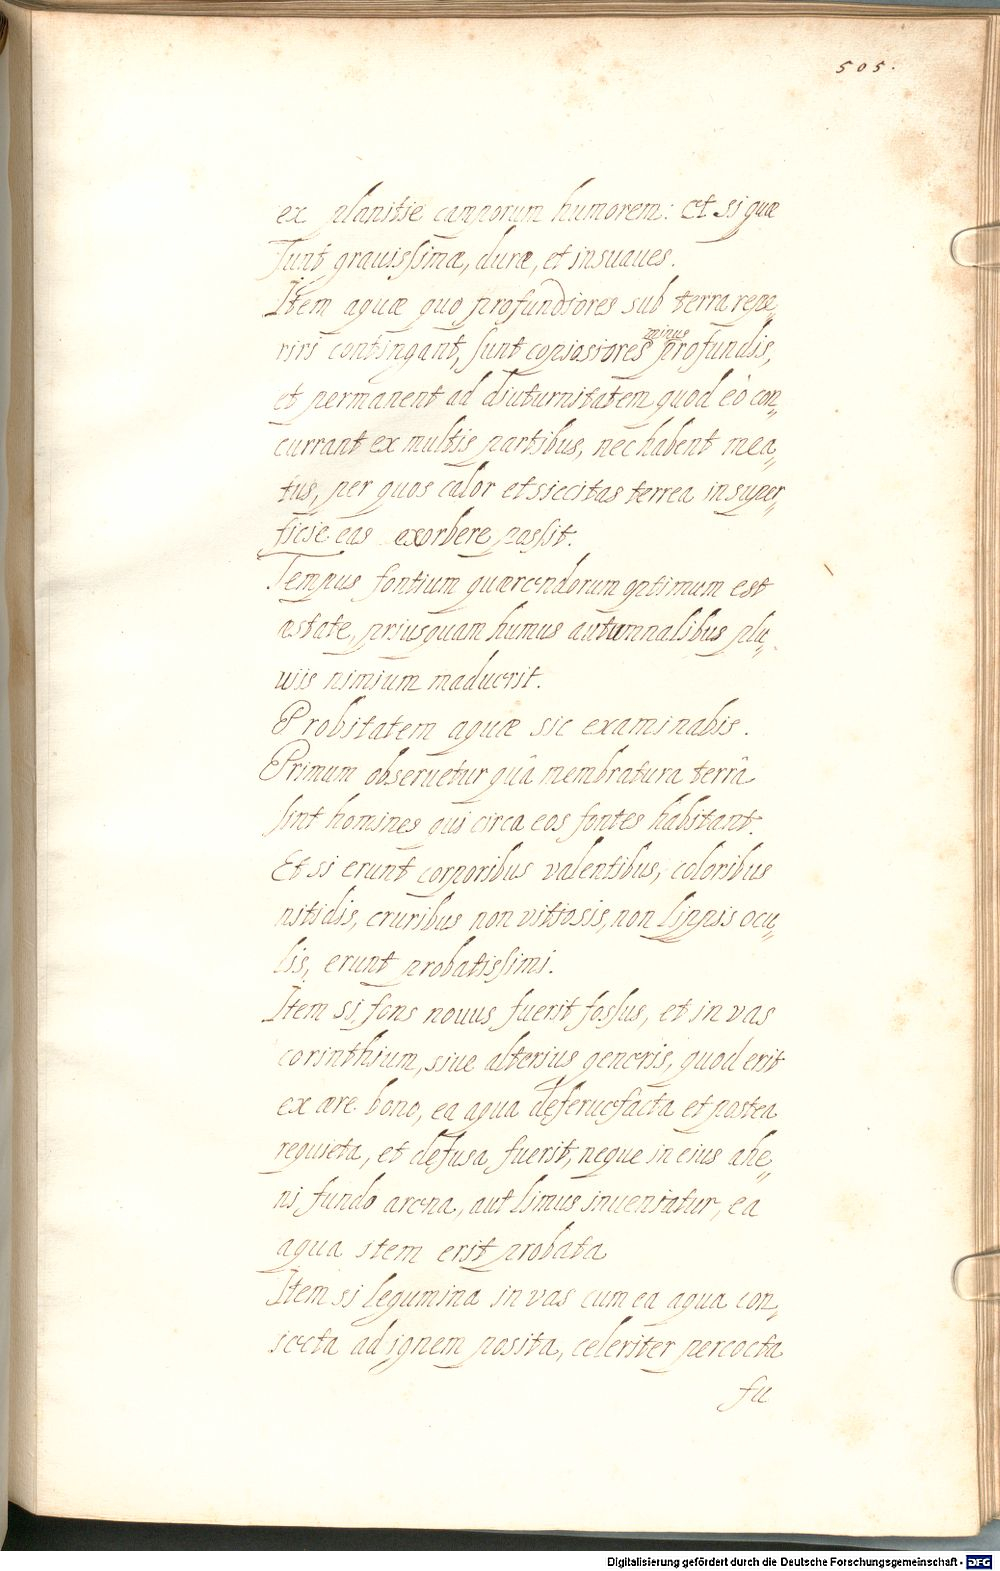 505.
ex planitie camporum humorem: et si quæ
sunt grauissimæ, duræ, et insuaues.
Item aquæ quo profundiores sub terra repe„
riri contingant, sunt copiosiores minus profundis,
et permanent ad diuturnitatem quod eò con„
currant ex multis partibus, nec habent mea„
tus, per quos calor et siccitas terrea in super„
ficie eas exorbere possit.
Tempus fontium quærendorum optimum est
æstate, priusquam humus autumnalibus plu„
uiis nimium maduerit.
Probitatem aquæ sic examinabis.
Primum obseruetur quâ membratura terrâ
sint homines qui circa eos fontes habitant.
Et si erunt corporibus valentibus, coloribus
nitidis, cruribus non vitiosis, non lippis ocu„
lis, erunt probatissimi.
Item si fons nouus fuerit fossus, et in vas
corinthium, siue alterius generis, quod erit
ex ære bono, ea aqua deferuefacta et postea
requieta, et defusa fuerit, neque in eius ahe„
ni fundo arena, aut limus inueniatur, ea
aqua item erit probata
Item si legumina in vas cum ea aqua con„
iecta ad ignem posita, celeriter percocta
fu
Digitalisierung gefördert durch die Deutsche Forschungsgemeinschaft - DFG